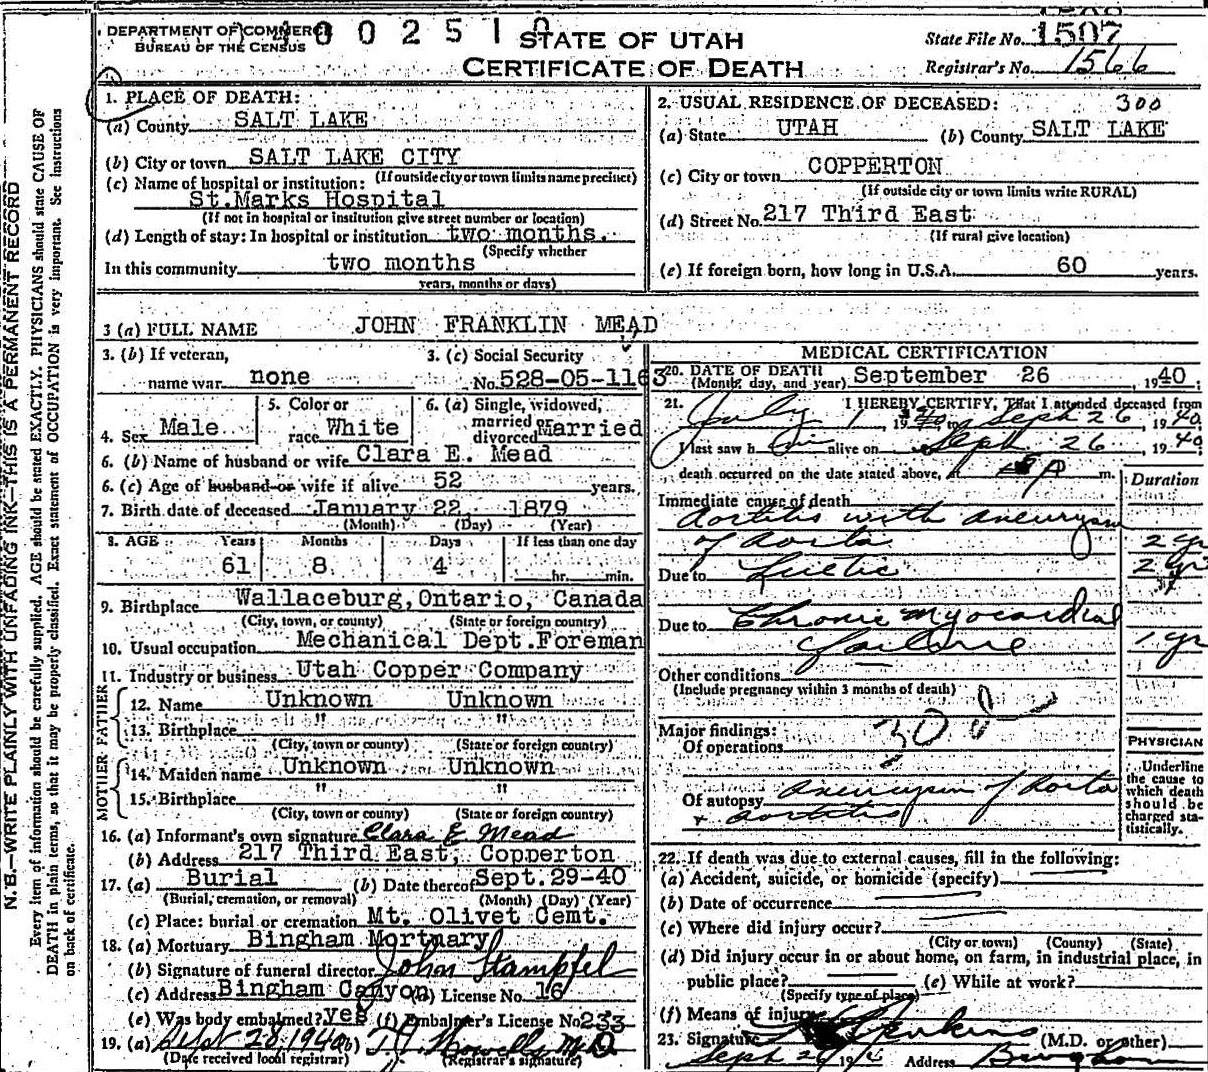 DEPARTMENT OF COMMERCE
BUREAU OF THE CENSUS
0 0 2 5 1 0
STATE OF UTAH
CERTIFICATE OF DEATH
State File No. 1507
Registrar's No. 1566
N.B.—WRITE PLAINLY WITH UNFADING INK—THIS IS A PERMANENT RECORD
Every item of information should be carefully supplied. AGE should be stated EXACTLY. PHYSICIANS should state CAUSE OF
DEATH in plain terms, so that it may be properly classified. Exact statement of OCCUPATION is very important. See instructions
on back of certificate.
1. PLACE OF DEATH:
(a) County SALT LAKE
(b) City or town SALT LAKE CITY
(If outside city or town limits name precinct)
(c) Name of hospital or institution:
St.Marks Hospital
(If not in hospital or institution give street number or location)
(d) Length of stay: In hospital or institution two months.
(Specify whether
In this community two months
years, months or days)
2. USUAL RESIDENCE OF DECEASED: 300
(a) State UTAH (b) County SALT LAKE
(c) City or town COPPERTON
(If outside city or town limits write RURAL)
(d) Street No. 217 Third East
(If rural give location)
(e) If foreign born, how long in U.S.A. 60 years.
3 (a) FULL NAME JOHN FRANKLIN MEAD
3. (b) If veteran,
name war none
3. (c) Social Security
No. 528-05-1163
4. Sex Male
5. Color or
race White
6. (a) Single, widowed,
married
divorced Married
6. (b) Name of husband or wife Clara E. Mead
6. (c) Age of husband or wife if alive 52 years.
7. Birth date of deceased January 22 1879
(Month) (Day) (Year)
8. AGE Years Months Days If less than one day
61 8 4 hr. min.
9. Birthplace Wallaceburg, Ontario, Canada
(City, town, or county) (State or foreign country)
10. Usual occupation Mechanical Dept.Foreman
11. Industry or business Utah Copper Company
FATHER
12. Name Unknown Unknown
13. Birthplace " "
(City, town or county) (State or foreign country)
MOTHER
14. Maiden name Unknown Unknown
15. Birthplace " "
(City, town or county) (State or foreign country)
16. (a) Informant's own signature Clara E Mead
(b) Address 217 Third East, Copperton
17. (a) Burial (b) Date thereof Sept. 29-40
(Burial, cremation, or removal) (Month) (Day) (Year)
(c) Place: burial or cremation Mt. Olivet Cemt.
18. (a) Mortuary Bingham Mortuary
(b) Signature of funeral director John Stampfel
(c) Address Bingham Canyon (d) License No. 16
(e) Was body embalmed? yes (f) Embalmer's License No 233
19. (a) Sept 28, 1940 (b) M.D.
(Date received local registrar) (Registrar's signature)
MEDICAL CERTIFICATION
20. DATE OF DEATH
(Month, day, and year) September 26, 1940;
21. I HEREBY CERTIFY, That I attended deceased from
July 1, 1940, to Sept 26, 1940
I last saw him alive on Sept 26, 1940
death occurred on the date stated above, P m.
Duration
Immediate cause of death
Aortitis with aneurysm
of aorta 2 yr
Due to Luetic 2 yr
Due to Chronic Myocardial
failure 1 yr
Other conditions
(Include pregnancy within 3 months of death)
30
Major findings:
Of operations
Of autopsy Aneurysm of Aorta
+ aortitis
PHYSICIAN
Underline
the cause to
which death
should be
charged sta-
tistically.
22. If death was due to external causes, fill in the following:
(a) Accident, suicide, or homicide (specify)
(b) Date of occurrence
(c) Where did injury occur?
(City or town) (County) (State)
(d) Did injury occur in or about home, on farm, in industrial place, in
public place? (e) While at work?
(Specify type of place)
(f) Means of injury
23. Signature Jenkins (M.D. or other)
Sept Address Bingham